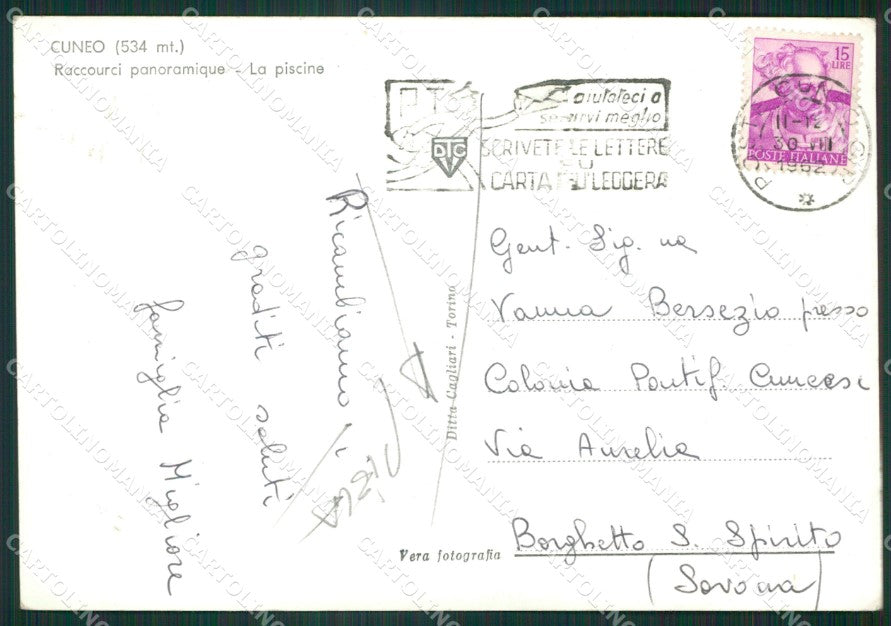 CUNEO (534 mt.)
Raccourci panoramique - La piscine
PT
aiutateci a
servirvi meglio
SCRIVETE LE LETTERE
SU
CARTA PIU' LEGGERA
DTC
15
LIRE
POSTE ITALIANE
11-12
30 VII
1962
Gent. Sig.na
Vanna Bersezio presso
Colonia Pontif. Cuneese
Via Aurelia
Borghetto S. Spirito
(Savona)
Ricambiamo i
graditi saluti
famiglia Migliore
Ditta Cagliari - Torino
Vera fotografia
CARTOLINOMANIA